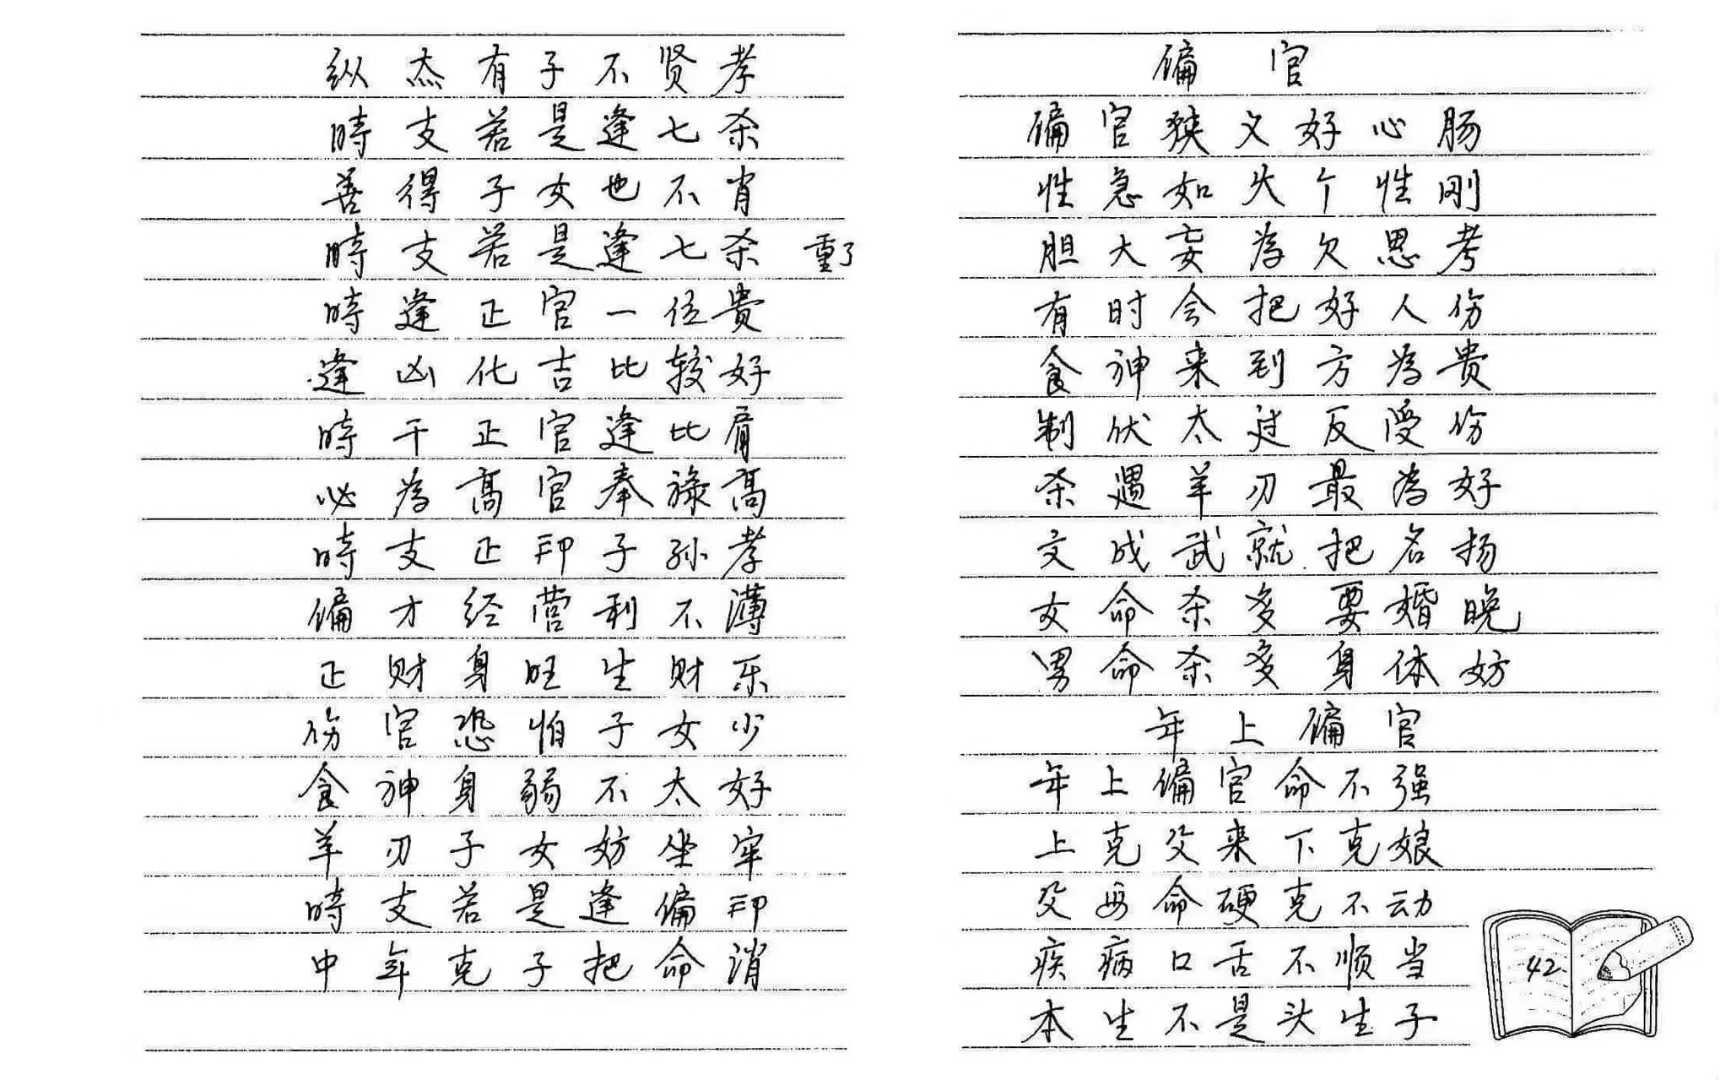 纵杰有子不贤孝
時支若是逢七杀
善得子女也不肖
時支若是逢七杀 重了
時逢正官一位贵
逢凶化吉比较好
時干正官逢比肩
必為高官奉禄高
時支正印子孙孝
偏才经营利不薄
正财身旺生财乐
伤官恐怕子女少
食神身弱不太好
羊刃子女妨坐牢
時支若是逢偏印
中年克子把命消
偏官
偏官狭义好心肠
性急如火个性刚
胆大妄為欠思考
有时会把好人伤
食神来到方為贵
制伏太过反受伤
杀遇羊刃最為好
文成武就把名扬
女命杀多要婚晚
男命杀多身体妨
年上偏官
年上偏官命不强
上克父来下克娘
父母命硬克不动
疾病口舌不顺当
本生不是头生子
42